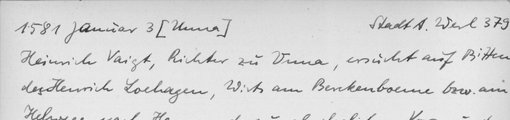 1581 Januar 3 [Unna] Stadt A. Werl 379
Heinrich Vaigt, Richter zu Unna, ersucht auf Bitten
des Henrich Loehagen, Wirts am Berckenboeme bzw. am